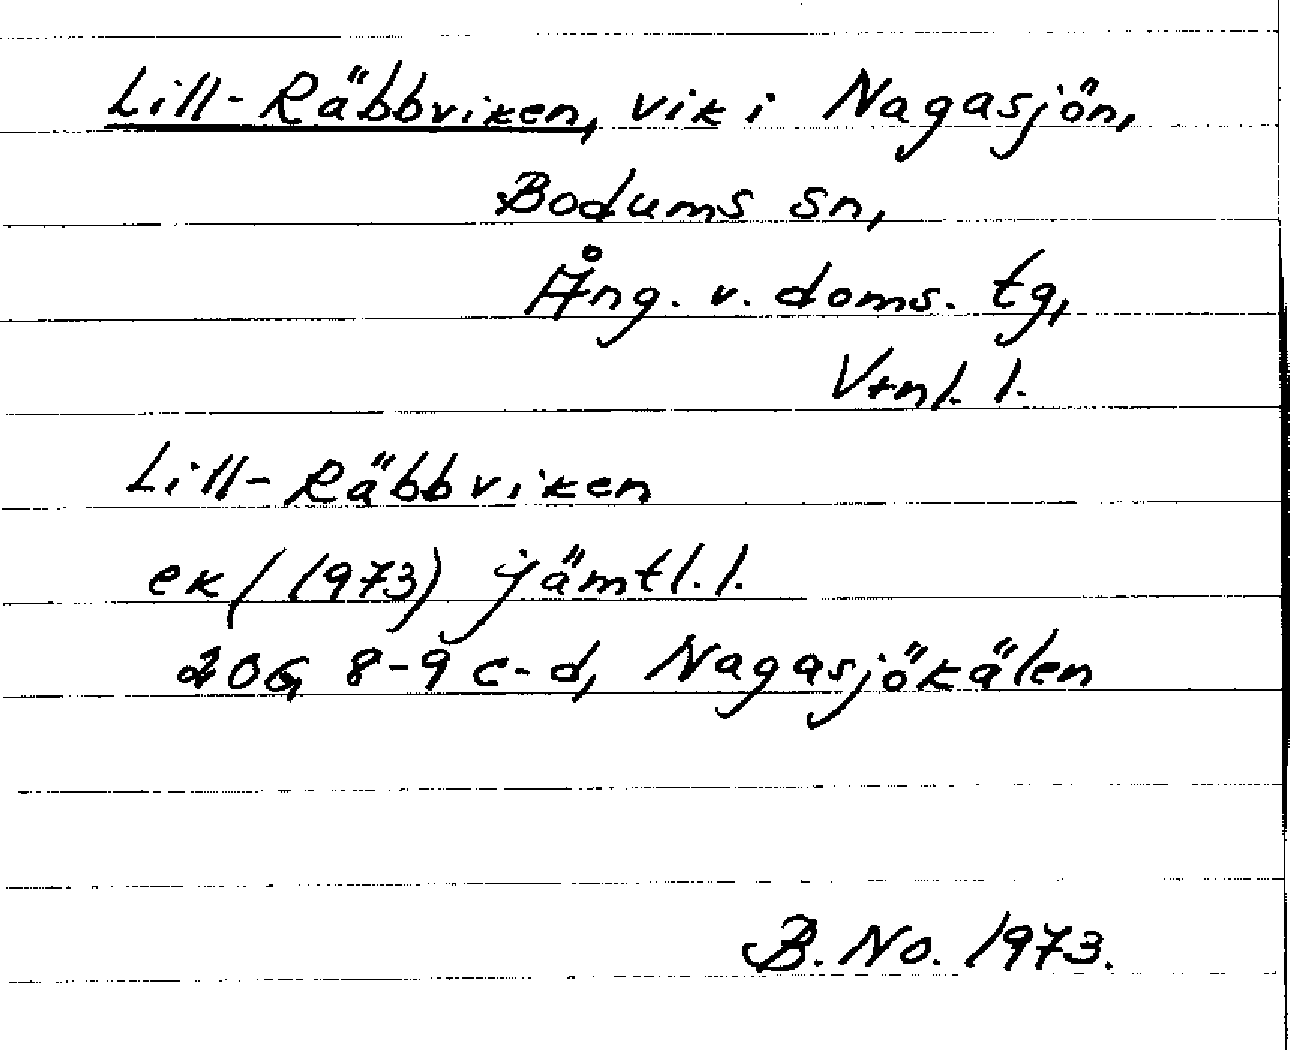 Lill-Räbbviken, vik i Nagasjön,
Bodums sn,
Ång. v. doms. tg,
Vtnl. l.
Lill-Räbbviken
ek/(1973) Jämtl. l.
20G 8-9 c-d, Nagasjökälen
B. No. 1973.